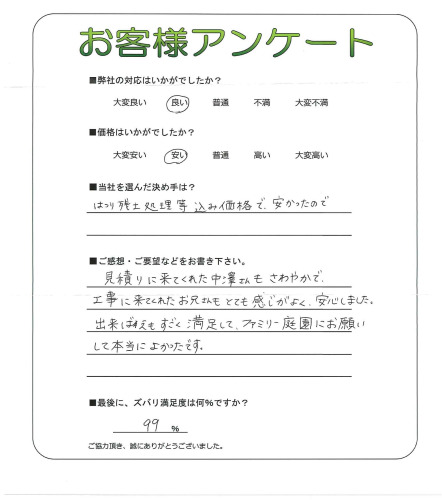 お客様アンケート
■弊社の対応はいかがでしたか？
大変良い 良い 普通 不満 大変不満
■価格はいかがでしたか？
大変安い 安い 普通 高い 大変高い
■当社を選んだ決め手は？
はつり残土処理等込み価格で、安かったので
■ご感想・ご要望などをお書き下さい。
見積りに来てくれた中澤さんもさわやかで、
工事に来てくれたお兄さんもとても感じがよく、安心しました。
出来ばえもすごく満足して、ファミリー庭園にお願い
して本当によかったです。
■最後に、ズバリ満足度は何%ですか？
99 %
ご協力頂き、誠にありがとうございました。